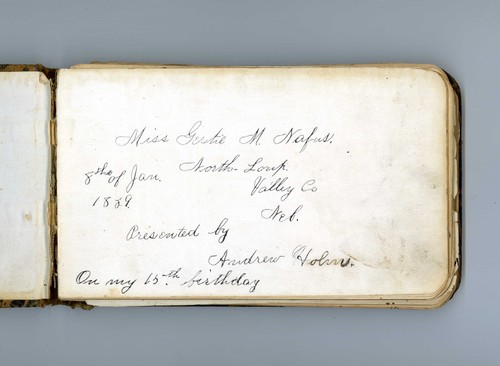 Miss Gertie M. Nafus.
North-Loup.
8th of Jan. Valley Co
1889. Neb.
Presented by
Andrew Holm.
On my 15th birthday